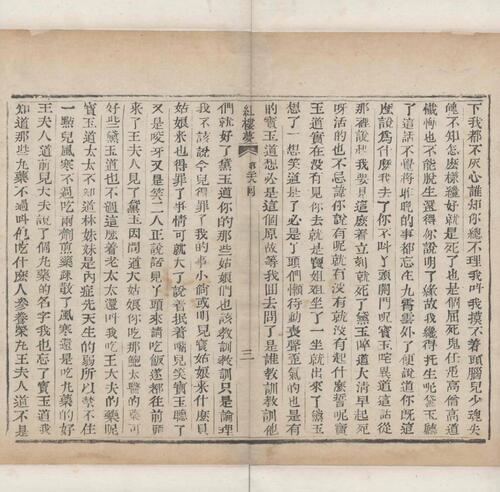 下我都不灰心誰知你總不理我叫我摸不着頭腦兒少魂失
魄不知怎麽樣纔好就是死了也是個屈死鬼任憑高僧高道
懺悔也不能脫生還得你說明了緣故我纔得托生呢黛玉聽
了這話不覺將昨晚的事都忘在九霄雲外了便說道你旣這
麽說爲什麽我去了你不叫丫頭開門呢寶玉咤異道這話從
那裡說起我要是這麽着立刻就死了黛玉啐道大清早起死
呀活的也不忌諱你說有呢就有沒有就沒有起什麽誓呢寶
玉道實在沒有見你去就是寶姐姐坐了一坐就出來了黛玉
想了一想笑道是了必是丫頭們懶待動喪聲歪氣的也是有
的寶玉道想必是這個原故等我回去問了是誰教訓教訓他
紅樓夢 第二十八回 三
們就好了黛玉道你的那些姑娘們也該教訓教訓只是論理
我不該說今兒得罪了我的事小倘或明兒寶姑娘來什麽貝
姑娘來也得罪了事情可就大了說着抿着嘴兒笑寶玉聽了
又是咬牙又是笑二人正說話見丫頭來請吃飯遂都往前頭
來了王夫人見了黛玉因問道大姑娘你吃那鮑太醫的藥可
好些黛玉道也不過這麽着老太太還叫我吃王大夫的藥呢
寶玉道太太不知道林妹妹是內症先天生的弱所以禁不住
一點兒風寒不過吃兩劑煎藥踈散了風寒還是吃丸藥的好
王夫人道前兒大夫說了個丸藥的名字我也忘了寶玉道我
知道那些丸藥不過叫他吃什麽人參養榮丸王夫人道不是